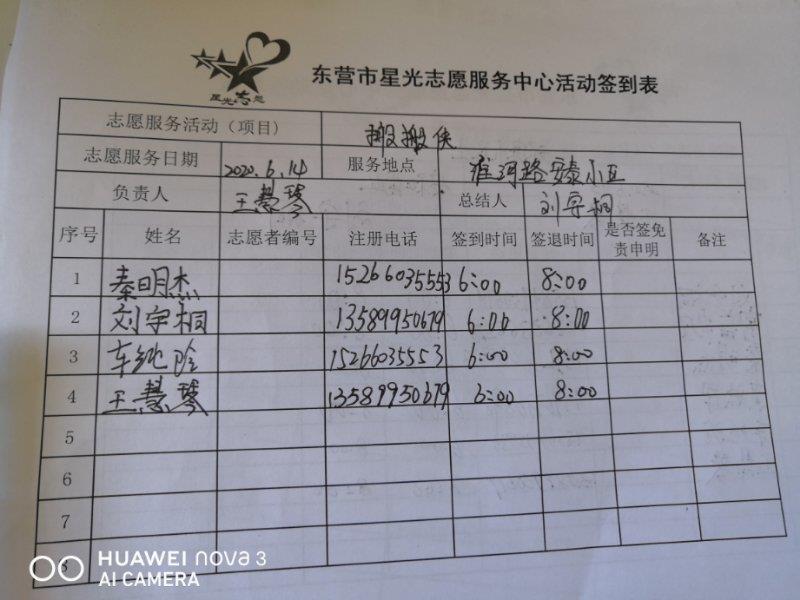 星光志愿
东营市星光志愿服务中心活动签到表
志愿服务活动（项目） 搬搬侠
志愿服务日期 2020.6.14 服务地点 淮河路安泰小区
负责人 王慧琴 总结人 刘宇桐
序号 姓名 志愿者编号 注册电话 签到时间 签退时间 是否签免责申明 备注
1 秦明杰 15266035553 6:00 8:00
2 刘宇桐 13589950679 6:00 8:00
3 车纯玲 15266035553 6:00 8:00
4 王慧琴 13589950679 6:00 8:00
5
6
7
8
HUAWEI nova 3
AI CAMERA